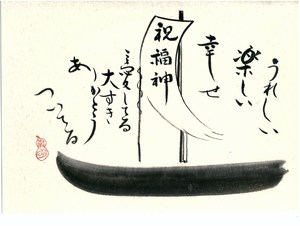 うれしい
楽しい
幸せ
祝福神
愛してる
大すき
ありがとう
ついてる